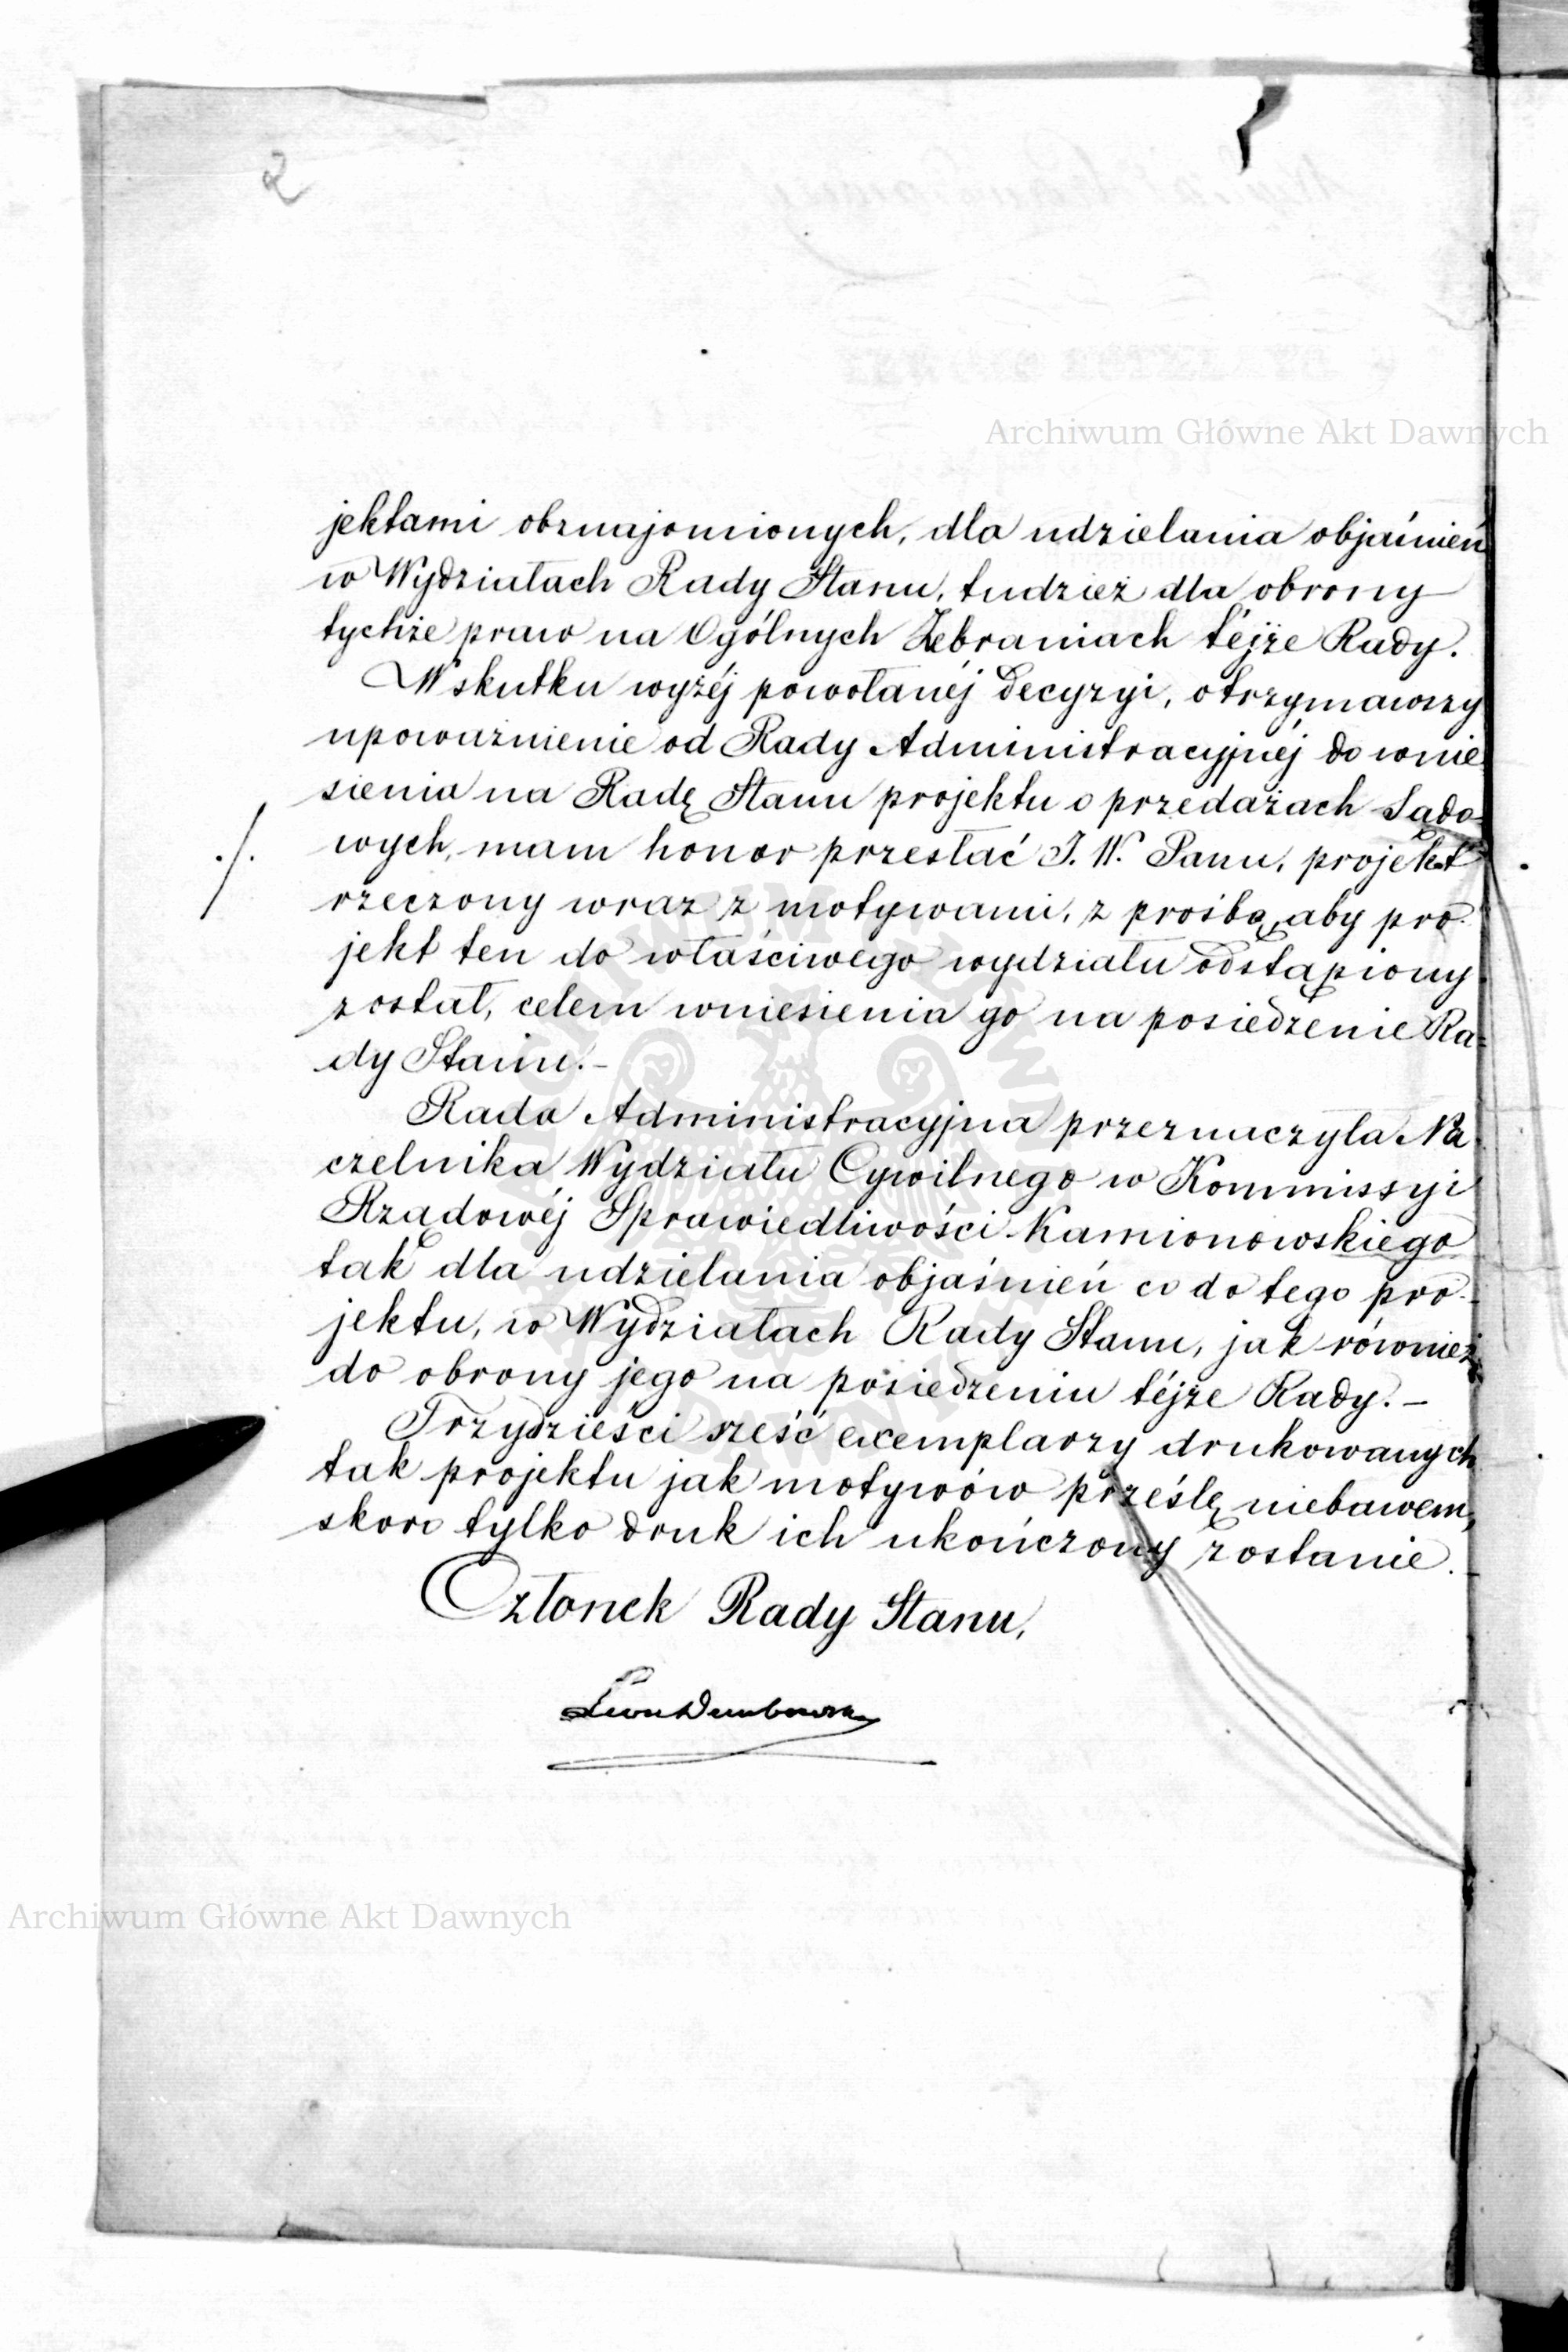 2
Archiwum Główne Akt Dawnych
jektami obznajomionych, dla udzielania objaśnień
w Wydziałach Rady Stanu, tudzież dla obrony
tychże praw na Ogólnych Zebraniach téjże Rady.
W skutku wyżéj powołanéj decyzyi, otrzymawszy
upoważnienie od Rady Administracyjnéj do wnie-
sienia na Radę Stanu projektu o przedażach Sądo-
./. wych, mam honor przesłać J. W. Panu, projekt
rzeczony wraz z motywami, z prośbą, aby pro-
jekt ten do właściwego wydziału odstąpiony
został, celem wniesienia go na posiedzenie Ra-
dy Stanu.-
Rada Administracyjna przeznaczyła Na-
czelnika Wydziału Cywilnego w Kommissyi
Rządowéj Sprawiedliwości Kamionowskiego
tak dla udzielania objaśnień co do tego pro-
jektu, w Wydziałach Rady Stanu, jak również
do obrony jego na posiedzeniu téjże Rady.-
Trzydzieści sześć exemplarzy drukowanych
tak projektu jak motywów prześlę niebawem,
skoro tylko druk ich ukończony zostanie.
Członek Rady Stanu,
Leon Dembowski
Archiwum Główne Akt Dawnych